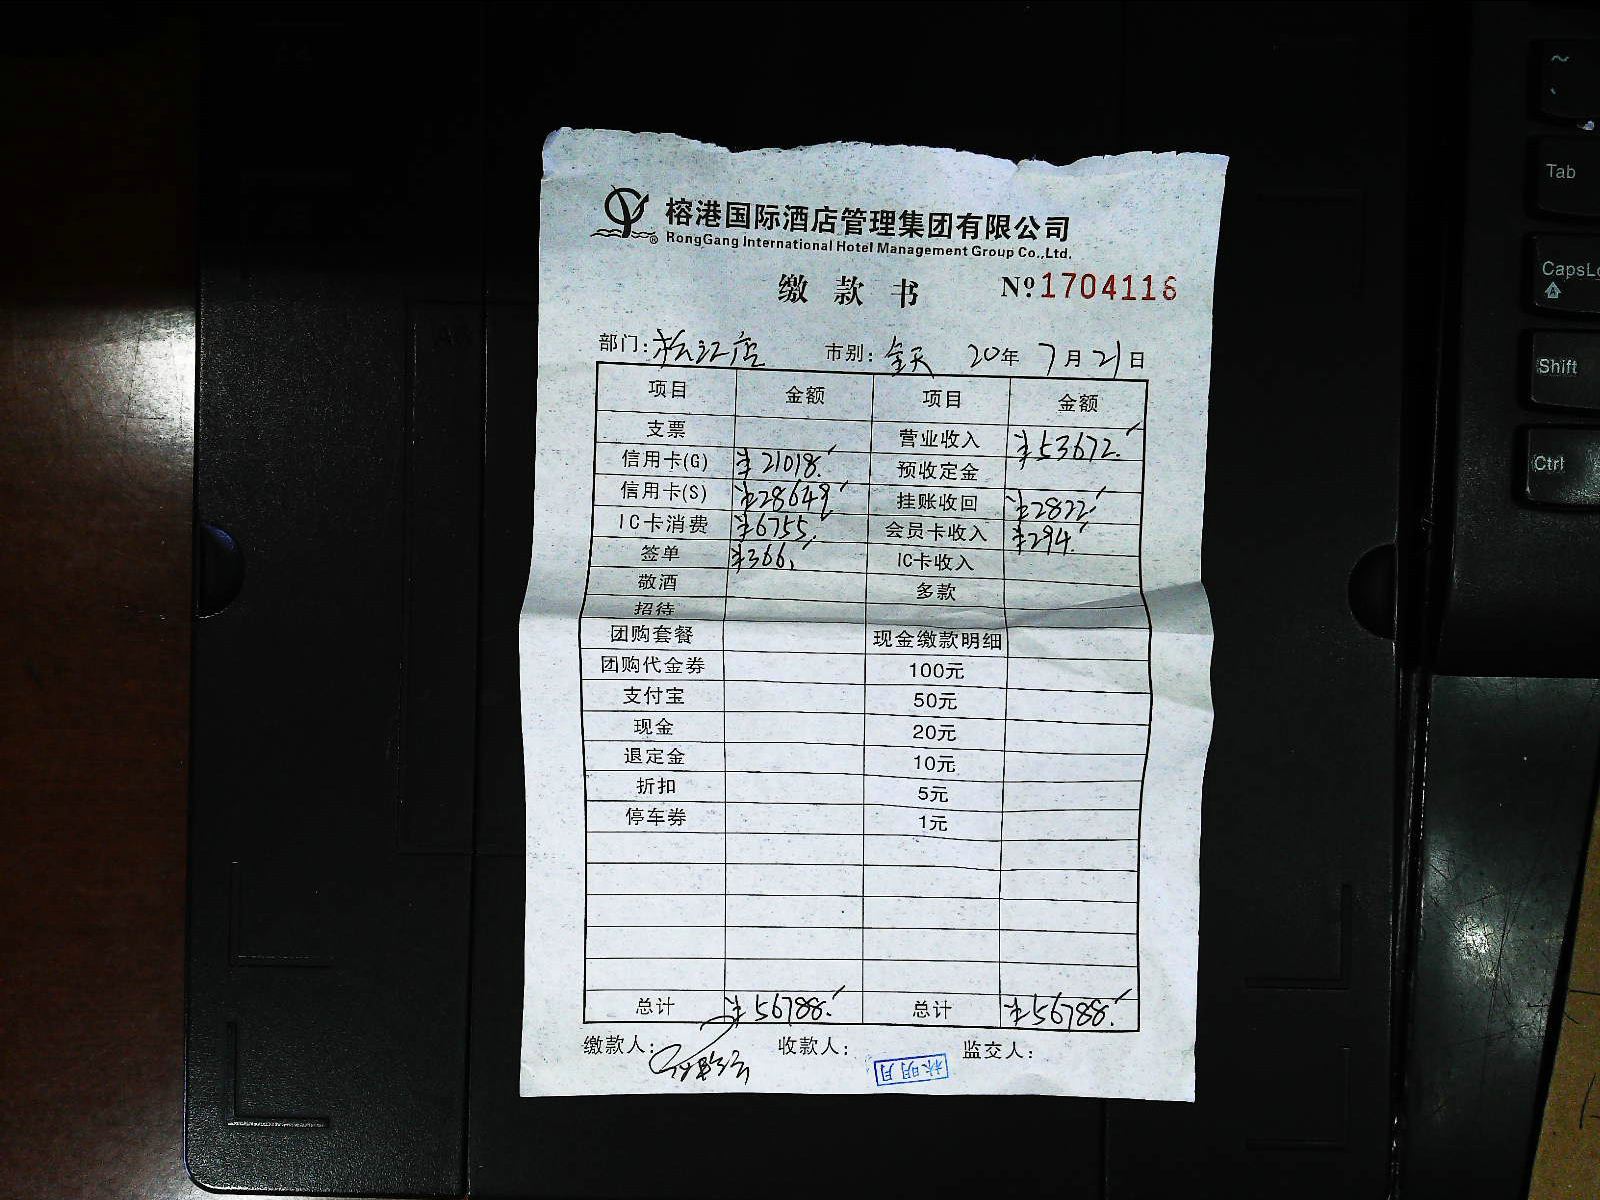 榕港国际酒店管理集团有限公司
RongGang International Hotel Management Group Co.,Ltd.
缴款书 Nº1704116
部门:松江店 市别:全天 20年 7月21日
项目 金额 项目 金额
支票 营业收入 ¥53672.
信用卡(G) ¥21018. 预收定金
信用卡(S) ¥28649 挂账收回 ¥2822.
IC卡消费 ¥6755. 会员卡收入 ¥294.
签单 ¥366. IC卡收入
敬酒 多款
招待
团购套餐 现金缴款明细
团购代金券 100元
支付宝 50元
现金 20元
退定金 10元
折扣 5元
停车券 1元
总计 ¥56788. 总计 ¥56788.
缴款人: 收款人: 监交人:
林明月
~
、
Tab
CapsLo
Shift
Ctrl